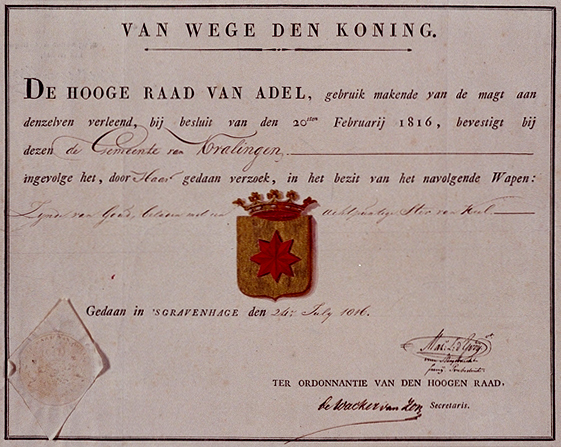 VAN WEGE DEN KONING.
DE HOOGE RAAD VAN ADEL, gebruik makende van de magt aan
denzelven verleend, bij besluit van den 20sten Februarij 1816, bevestigt bij
dezen de Gemeente van Cralingen
ingevolge het, door Haar gedaan verzoek, in het bezit van het navolgende Wapen:
Zynde van Goud, beladen met een achtpuntige Ster van Keel
Gedaan in 'SGRAVENHAGE den 24e July 1816.
TER ORDONNANTIE VAN DEN HOOGEN RAAD.
de Wacker van Zon Secretaris.